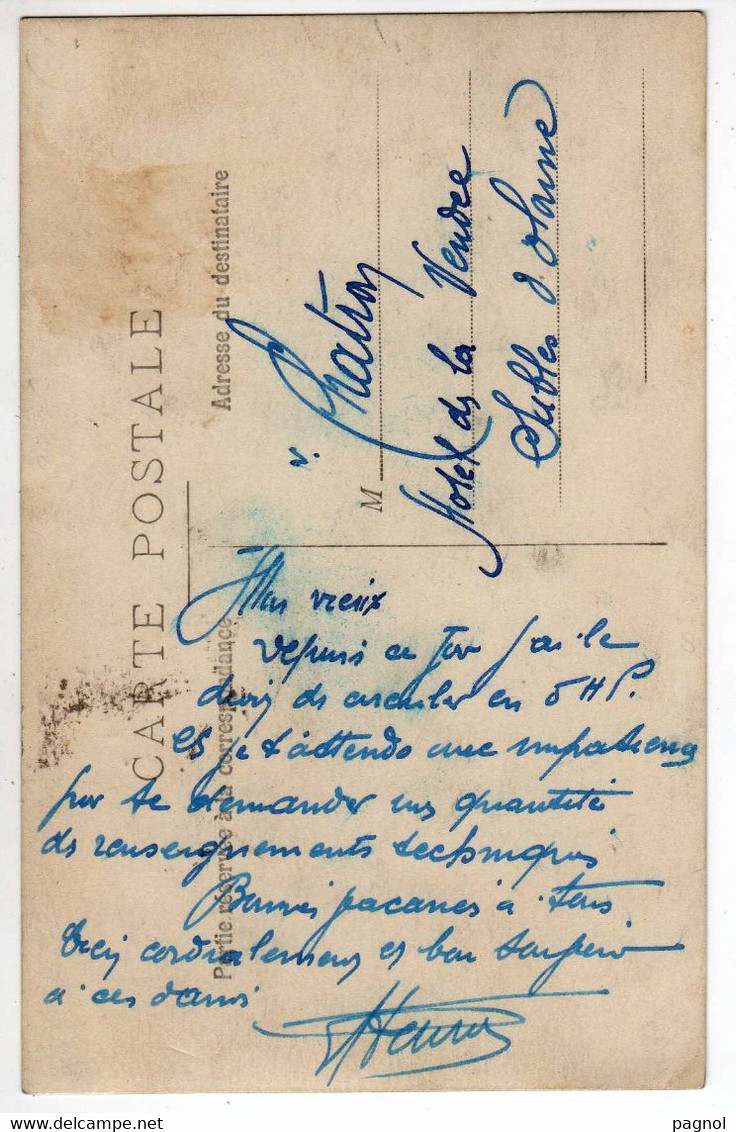 CARTE POSTALE
Partie réservée à la correspondance
Adresse du destinataire
M Chatron
Hotel de la Vendée
Sables d'olonne
Mon vieux
Depuis ce jour j'ai le
de circuler en 5 HP.
et je t'attends avec impatience
pour te demander une quantité
de renseignements techniques
Bonnes vacances à tous
Bien cordialement et bon souvenir
à ces dames
pagnol